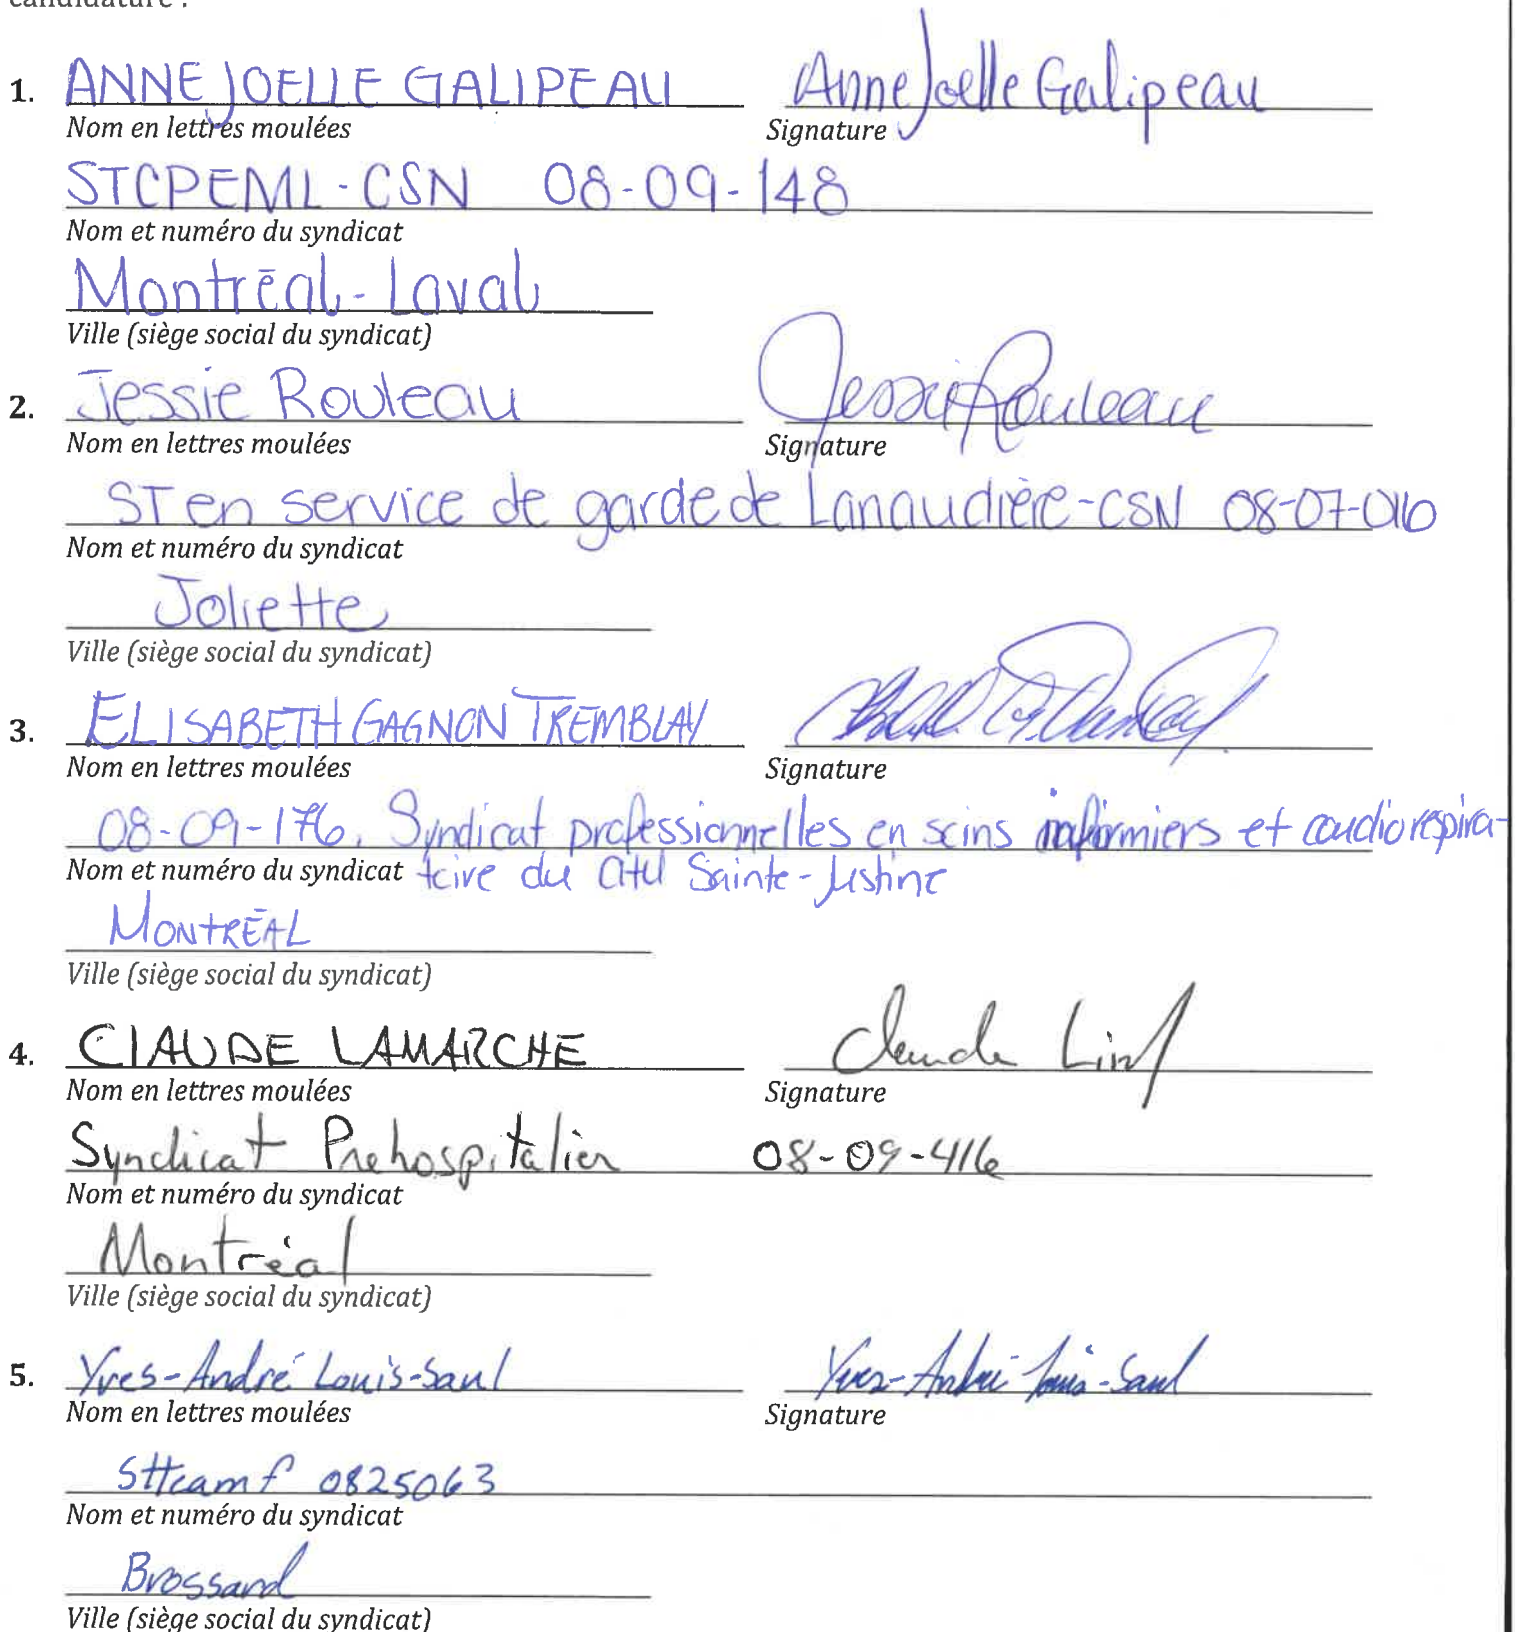 candidature :
1. ANNE JOELLE GALIPEAU Anne Joelle Galipeau
Nom en lettres moulées Signature
STCPEML-CSN 08-09-148
Nom et numéro du syndicat
Montréal-Laval
Ville (siège social du syndicat)
2. Jessie Rouleau Jessie Rouleau
Nom en lettres moulées Signature
ST en service de garde de Lanaudière-CSN 08-07-016
Nom et numéro du syndicat
Joliette
Ville (siège social du syndicat)
3. ELISABETH GAGNON TREMBLAY
Nom en lettres moulées Signature
08-09-176. Syndicat professionnelles en soins infirmiers et cardiorespira-
Nom et numéro du syndicat toire du CHU Sainte-Justine
MONTRÉAL
Ville (siège social du syndicat)
4. CLAUDE LAMARCHE Claude
Nom en lettres moulées Signature
Syndicat Prehospitalier 08-09-416
Nom et numéro du syndicat
Montréal
Ville (siège social du syndicat)
5. Yves-André Louis-Saul Yves-André Louis-Saul
Nom en lettres moulées Signature
Sttcamf 0825063
Nom et numéro du syndicat
Brossard
Ville (siège social du syndicat)